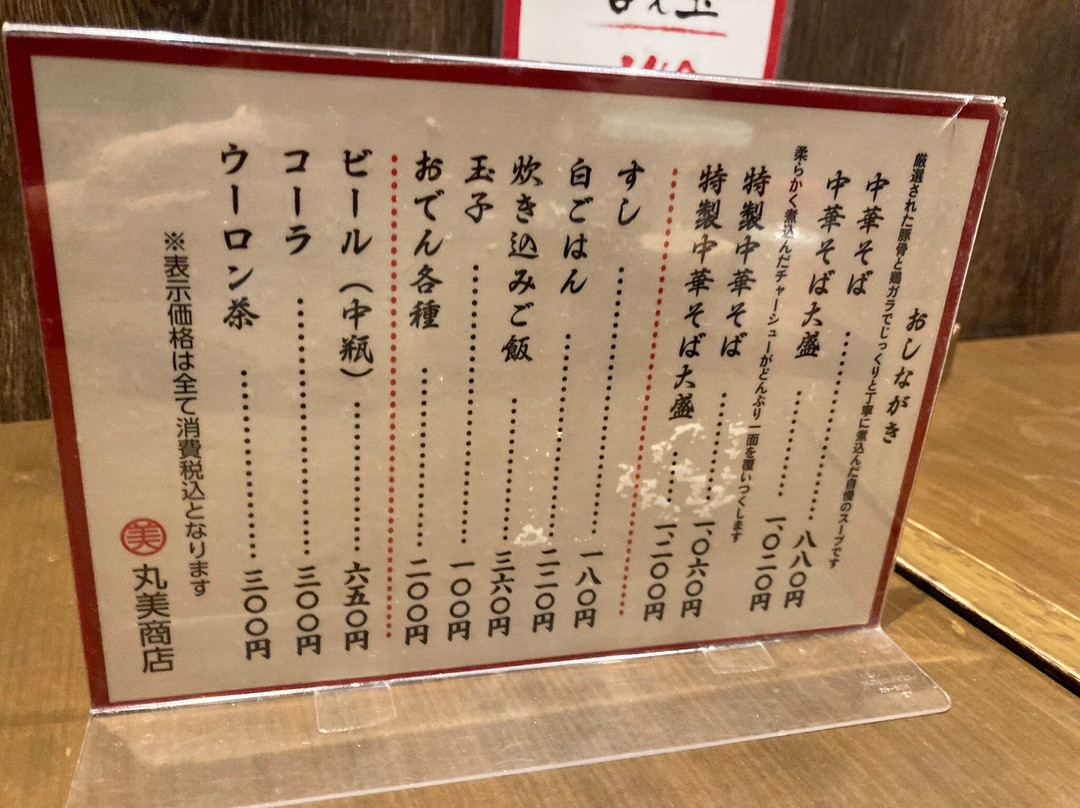 おしながき
厳選された豚骨と鶏ガラでじっくりと丁寧に煮込んだ自慢のスープです
中華そば 八八〇円
中華そば大盛 一、〇二〇円
柔らかく煮込んだチャーシューがどんぶり一面を覆いつくします
特製中華そば 一、〇六〇円
特製中華そば大盛 一、二〇〇円
すし 一八〇円
白ごはん 二二〇円
炊き込みご飯 三六〇円
玉子 一〇〇円
おでん各種 二〇〇円
ビール(中瓶) 六五〇円
コーラ 三〇〇円
ウーロン茶 三〇〇円
※表示価格は全て消費税込となります
美 丸美商店